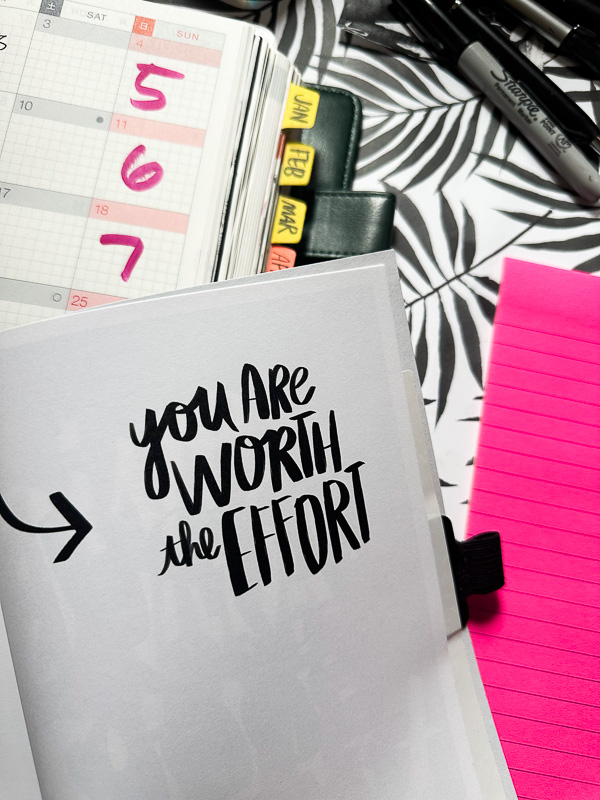 SAT
日 SUN
3
4
5
10
11
6
17
18
7
25
JAN
FEB
MAR
Sharpie
you ARE
WORTH
the EFFORT